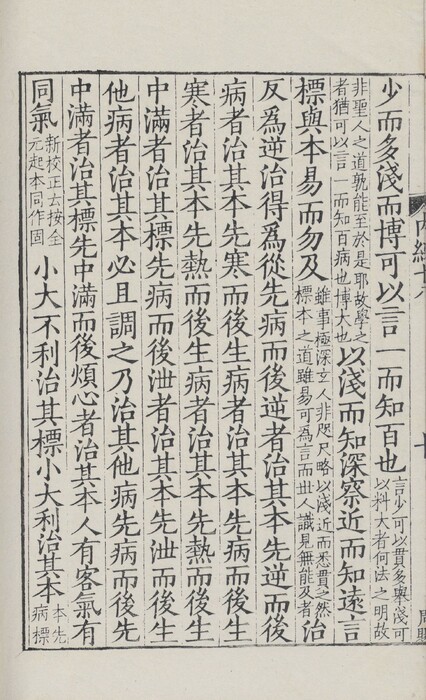 少而多淺而博可以言一而知百也言少可以貫多舉淺可以料大者何法之明故
非聖人之道孰能至於是耶故學之者猶可以言一而知百病也博大也以淺而知深察近而知遠言
標與本易而勿及雖事極深玄人非咫尺略以淺近而悉貫之然標本之道雖易可爲言而世人識見無能及者治
反爲逆治得爲從先病而後逆者治其本先逆而後
病者治其本先寒而後生病者治其本先病而後生
寒者治其本先熱而後生病者治其本先熱而後生
中滿者治其標先病而後泄者治其本先泄而後生
他病者治其本必且調之乃治其他病先病而後先
中滿者治其標先中滿而後煩心者治其本人有客氣有
同氣新校正云按全元起本同作固小大不利治其標小大利治其本本先病標